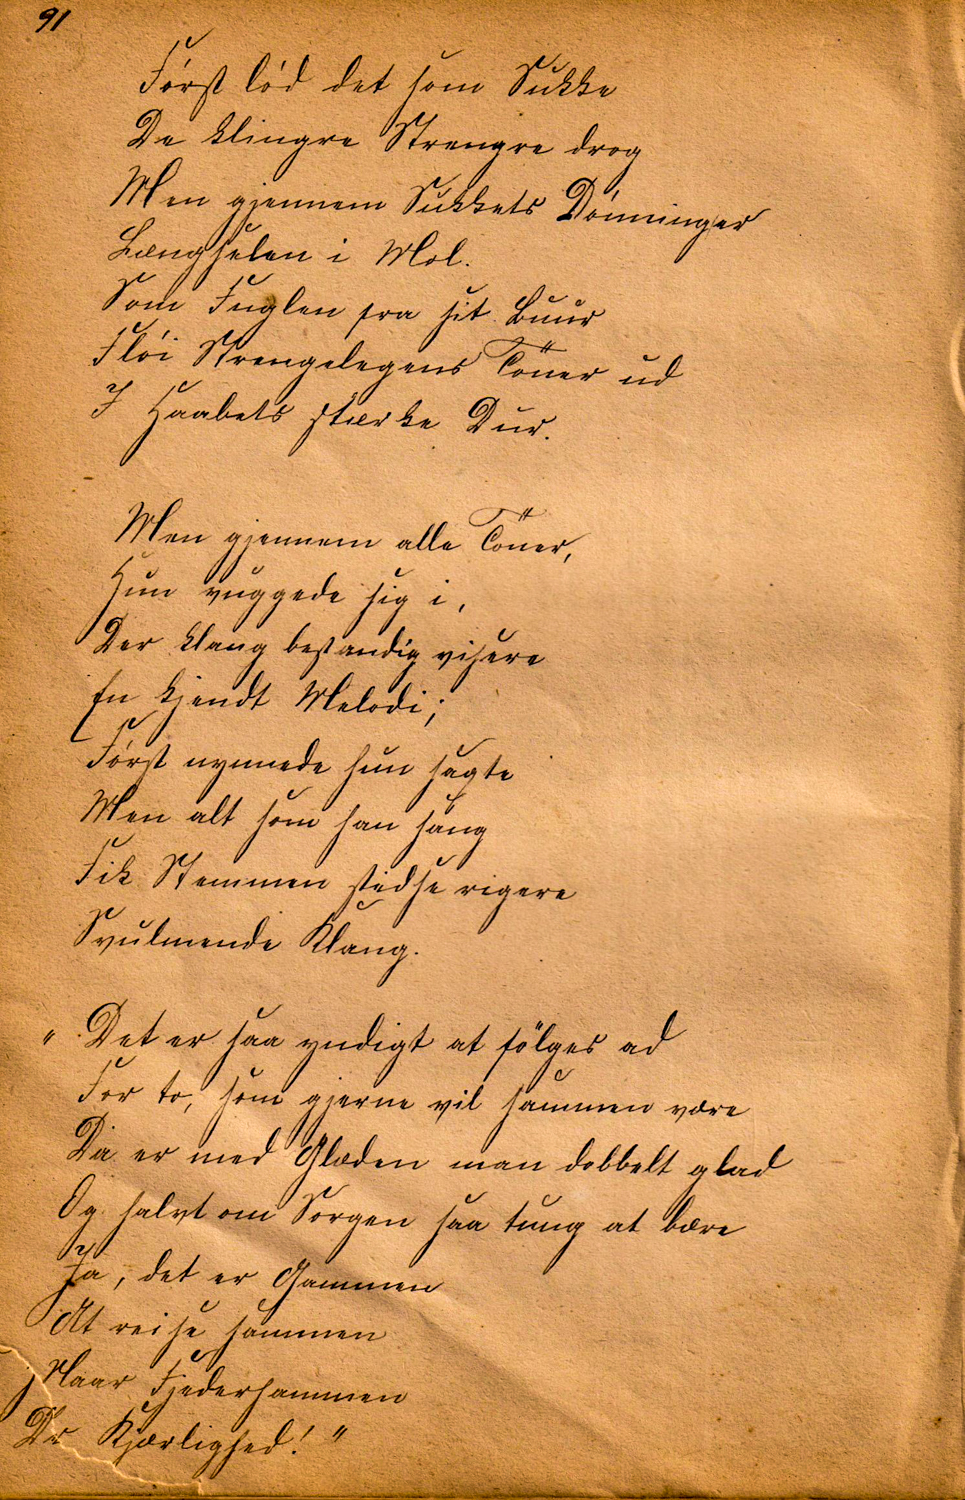 91
Först lød det som Sukke
De klingre Strengre drog
Men gjennem Sukkets Dønninger
Længselen i Mol.
Som Fuglen fra sit Buur
Fløi Strengelegens Toner ud
I Haabets stærke Dur.
Men gjennem alle Toner,
Hun vuggede sig i,
Der klang bestandig vissere
En kjendt Melodi;
Først nynnede hun sagte
Men alt som han sang
Fik Stemmen stedse rigere
Svulmende Klang.
„ Det er saa yndigt at følges ad
For to, som gjerne vil sammen være
Da er med Glæden man dobbelt glad
Og halvt om Sorgen saa tung at bære
Ja, det er Gammen
At reise sammen
Naar Fjederhammen
Er Kjærlighed! "